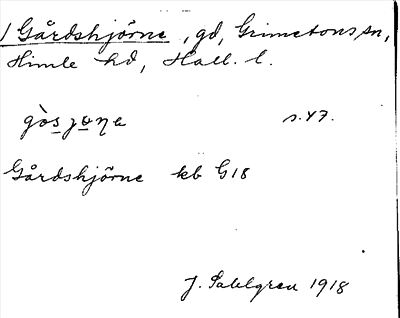 1 Gårdshjörne, gd, Grimetons sn,
Himle hd, Hall. l.
s. 47.
Gårdshjörne kb G18
J. Sahlgren 1918